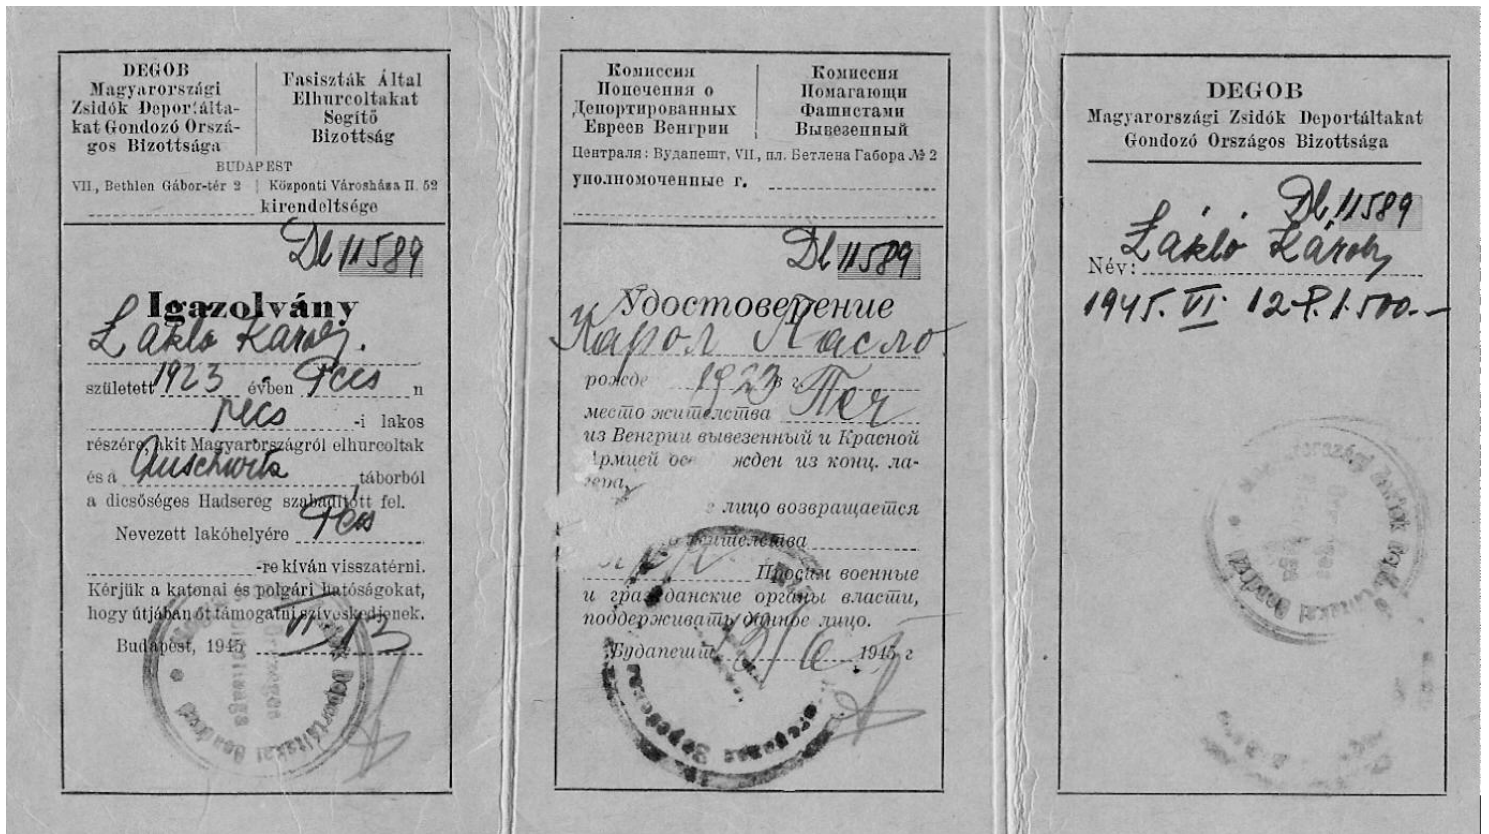 DEGOB
Magyarországi
Zsidók Deportálta-
kat Gondozó Orszá-
gos Bizottsága
Fasiszták Által
Elhurcoltakat
Segítő
Bizottság
BUDAPEST
VII., Bethlen Gábor-tér 2
Központi Városháza II. 52
kirendeltsége
Db 11589
Igazolvány
László Károly.
született 1923 évben Pécs n
Pécs -i lakos
részére, akit Magyarországról elhurcoltak
és a Auschwitz táborból
a dicsőséges Hadsereg szabadított fel.
Nevezett lakóhelyére Pécs
-re kiván visszatérni.
Kérjük a katonai és polgári hatóságokat,
hogy útjában őt támogatni sziveskedjenek.
Budapest, 1945 VI. 13
Комиссия
Попечения о
Депортированных
Евреев Венгрии
Комиссия
Помагающи
Фашистами
Вывезенный
Централя: Вудапешт, VII., пл. Бетлена Габора № 2
уполномоченные г.
Db 11589
Удостоверение
Карол Ласло.
рожде 1923 в г. Печ
место жительства Печ
из Венгрии вывезенный и Красной
Армией ос жден из конц. ла-
геря,
лицо возвращается
жительства
Просим военные
и гражданские органы власти,
поддерживать данное лицо.
Будапешт 13/6 1945 г
DEGOB
Magyarországi Zsidók Deportáltakat
Gondozó Országos Bizottsága
Db 11589
Név: László Károly
1945. VI. 12 P. 1.500.-